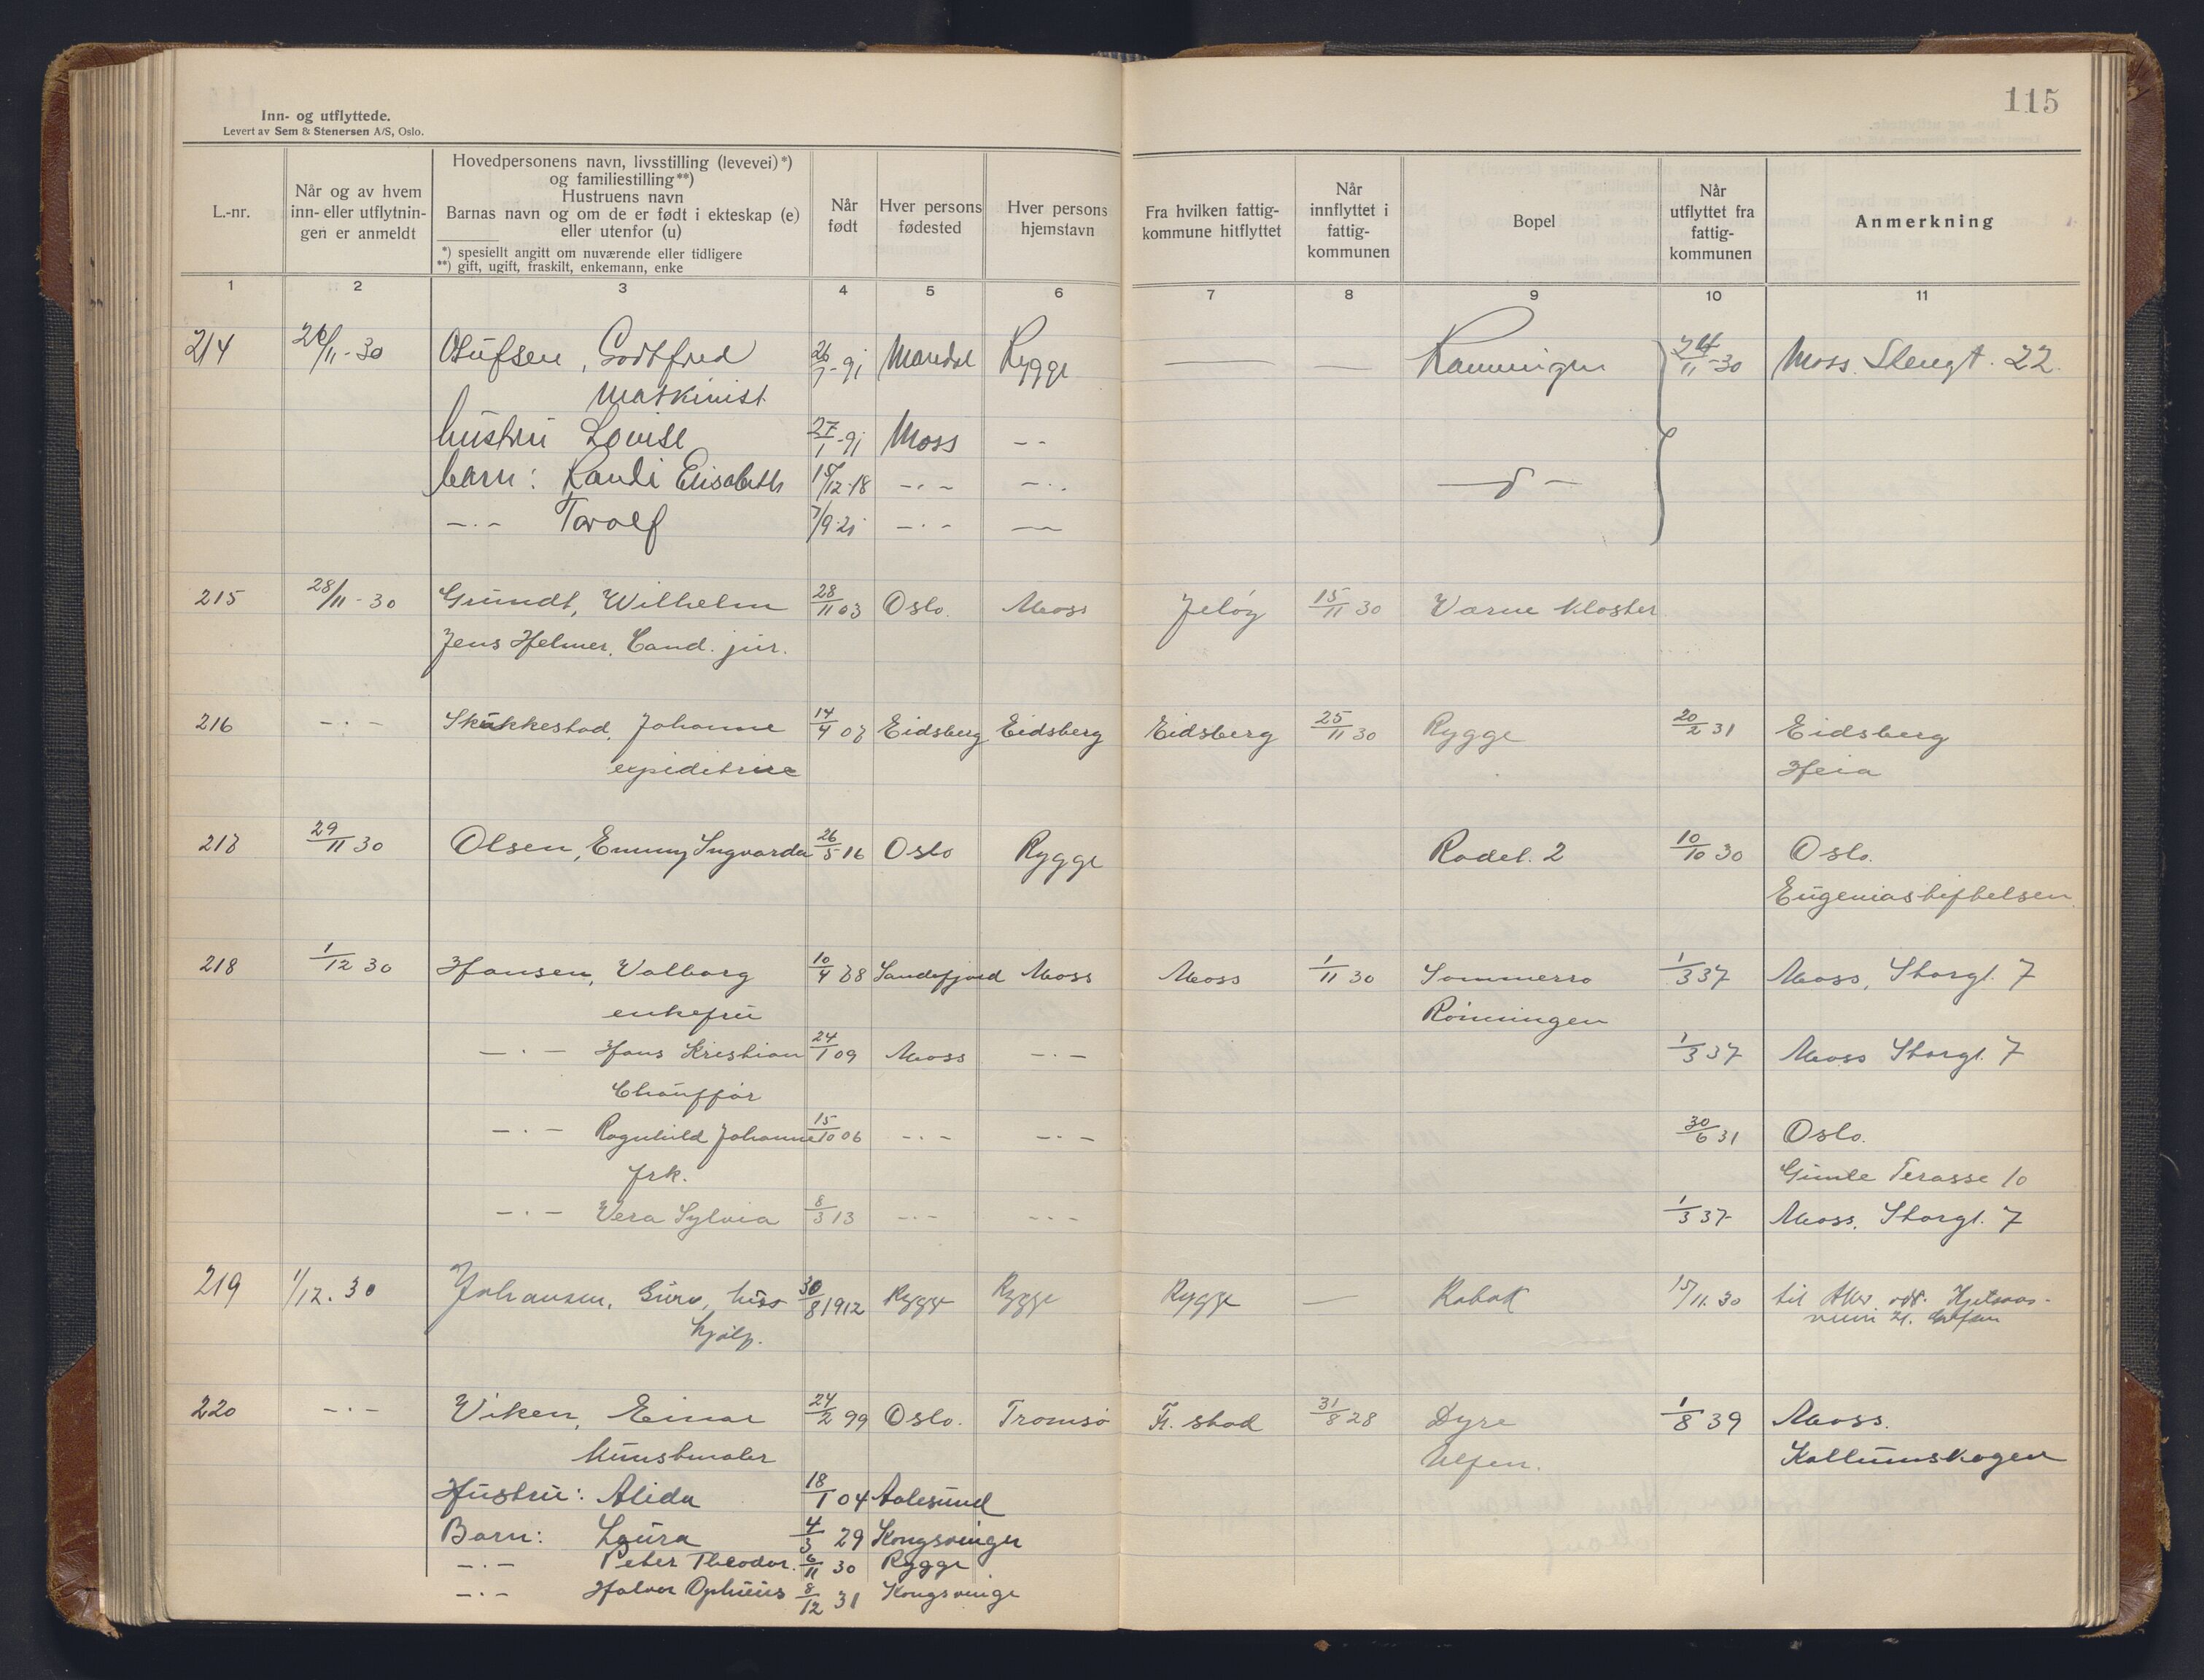 115
Inn- og utflyttede.
Levert av Sem & Stenersen A/S, Oslo.
L.-nr.
Når og av hvem
inn- eller utflytnin-
gen er anmeldt
Hovedpersonens navn, livsstilling (levevei)*)
og familiestilling**)
Hustruens navn
Barnas navn og om de er født i ekteskap (e)
eller utenfor (u)
*) spesiellt angitt om nuværende eller tidligere
**) gift, ugift, fraskilt, enkemann, enke
Når
født
Hver persons
fødested
Hver persons
hjemstavn
Fra hvilken fattig-
kommune hitflyttet
Når
innflyttet i
fattig-
kommunen
Bopel
Når
utflyttet fra
fattig-
kommunen
Anmerkning
1 2 3 4 5 6 7 8 9 10 11
214 26/11-30 Olufsen, Godtfred 26/7-91 Mandal Rygge — — 24/11-30 Moss. Stengt. 22.
Maskinist
hustru Louise 27/1-91 Moss - -
barn: Randi Elisabeth /12-18 -·- -·-
-·- Toralf 7/9-21 -·- —
215 28/11-30 Grundt, Wilhelm 28/11 03 Oslo. Moss Jeløy 15/11 30 Varne Kloster
Jens Helmer, Cand. jur.
216 -·- Skukkestad, Johanne 14/4 07 Eidsberg Eidsberg Eidsberg 25/11 30 Rygge 20/2 31 Eidsberg
expeditrise Heia
217 29/11 30 Olsen, Emmy Ingvarda 26/5 16 Oslo Rygge Rodel. 2 10/10 30 Oslo.
Eugeniastiftelsen.
218 1/12 30 Hansen, Valborg 10/4 78 Sandefjord Moss Moss 1/11 30 Sommerro 1/3 37 Moss, Storgt. 7
enkefru Rønningen
-·- Hans Kristian 24/1 09 Moss -·- 1/3 37 Moss Storgt. 7
Chauffør
-·- Ragnhild Johanne 15/10 06 -·- -·- 30/6 31 Oslo.
frk. Gimle Terasse 10
-·- Vera Sylvia 8/3 13 -·- -·- 1/3 37 Moss. Storgt. 7
219 1/12. 30 Johansen, Guro, huss 30/8 1912 Rygge Rygge Rygge — Rabak 15/11. 30 til Aker
hjelp.
220 -·- Viken, Einar 24/2 99 Oslo. Tromsø Fr. stad 31/8 28 Dyre 1/8 39 Moss.
Kunstmaler Ulfen. Kallumskogen
Hustru: Alida 18/1 04 Aalesund
Barn: Laura 4/3 29 Kongsvinger
-·- Peter Theodor. 6/11 30 Rygge
-·- Halvor 8/12 31 Kongsvinge